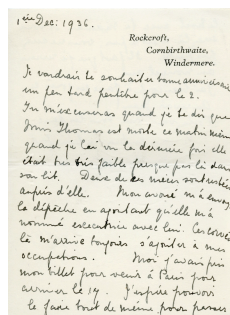 1ère Dec: 1936.
Rockcroft,
Cornbirthwaite,
Windermere.
Je voudrais te souhaiter bonne anniversaire
un peu tard peutêtre pour le 2.
Tu m'excuseras quand je te dis que
Thomas est morte ce matin même
quand je l'ai vu la dernière fois elle
était très très faible presque pas là dans
son lit. Deux de ses nièces sont restées
auprès d'elle. Mon avoué m'a envoyé
la dépêche en ajoutant qu'elle m'a
nommé executrice avec lui. Ces corvées
là m'arrive toujours s'ajouter à mes
occupations. Moi j'avais pris
mon billet pour venir à Paris pour
arriver le 14. J'espère pouvoir
le faire tout de même pour passer